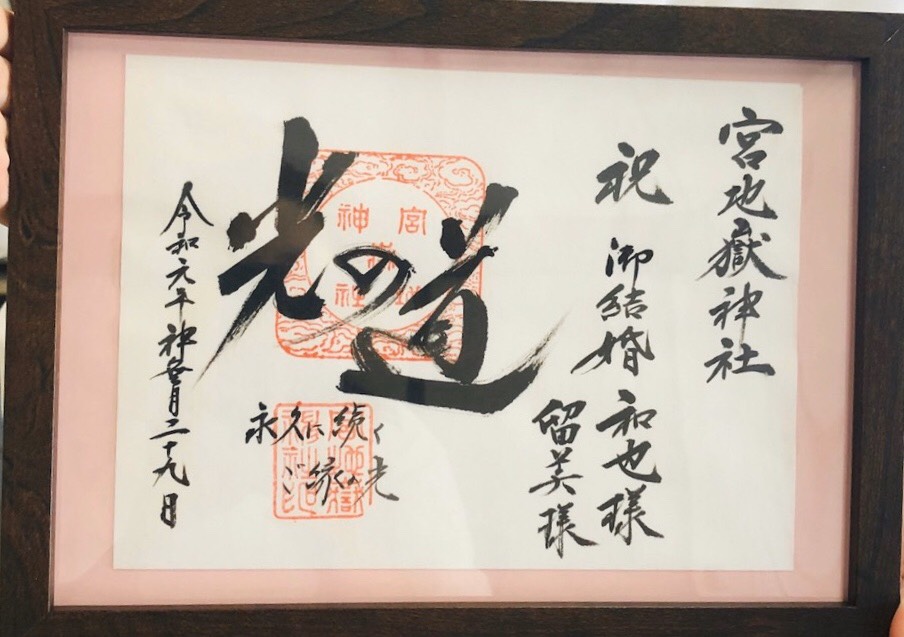 宮地嶽神社
祝 御結婚 和也様
留美様
光の道
永久に続く
ご縁の光
令和元年神無月二十九日
宮地嶽神社